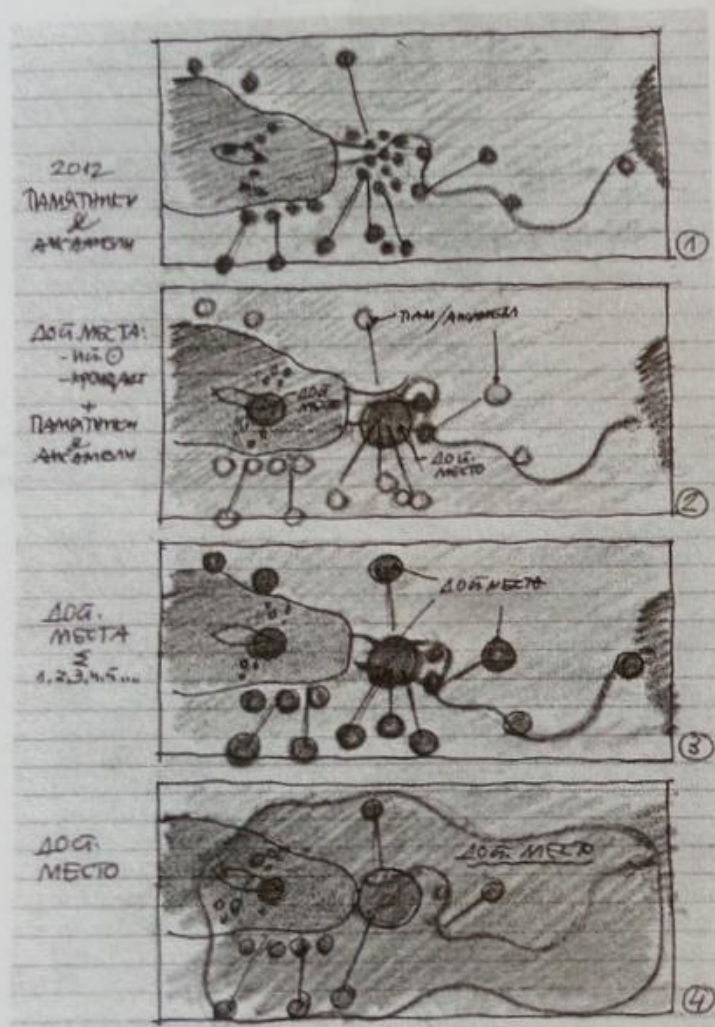 2012
ПАМЯТНИКИ
&
АНСАМБЛИ
①
ДОСТ. МЕСТА:
- ИСТ ⊙
- КРОНШДТ
+
ПАМЯТНИКИ
&
АНСАМБЛИ
ПАМ/АНСАМБЛ
ДОСТ.
МЕСТО
ДОСТ.
МЕСТО
②
ДОСТ.
МЕСТА
1,2,3,4,5...
ДОСТ МЕСТА
③
ДОСТ.
МЕСТО
ДОСТ. МЕСТО
④